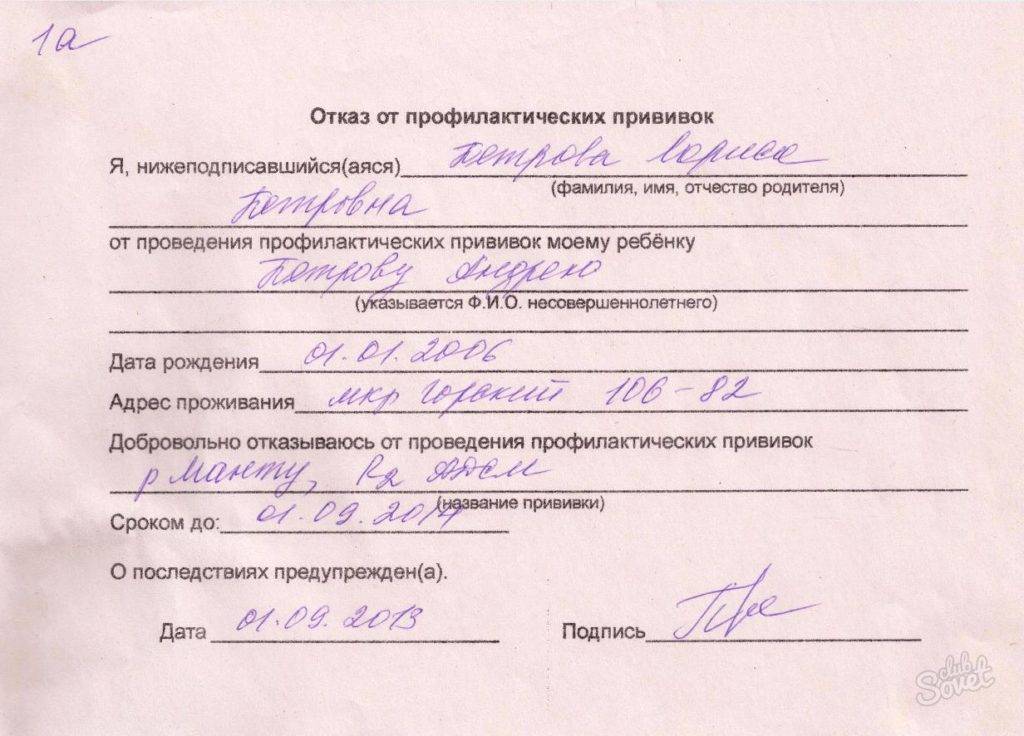 1а
Отказ от профилактических прививок
Я, нижеподписавшийся(аяся) Петрова Лариса
(фамилия, имя, отчество родителя)
Петровна
от проведения профилактических прививок моему ребёнку
Петрову Андрею
(указывается Ф.И.О. несовершеннолетнего)
Дата рождения 01.01.2006
Адрес проживания мкр Горский 106-82
Добровольно отказываюсь от проведения профилактических прививок
р Манту, R2 АДСМ
(название прививки)
Сроком до: 01.09.2014
О последствиях предупрежден(а).
Дата 01.09.2013 Подпись
club Sovet